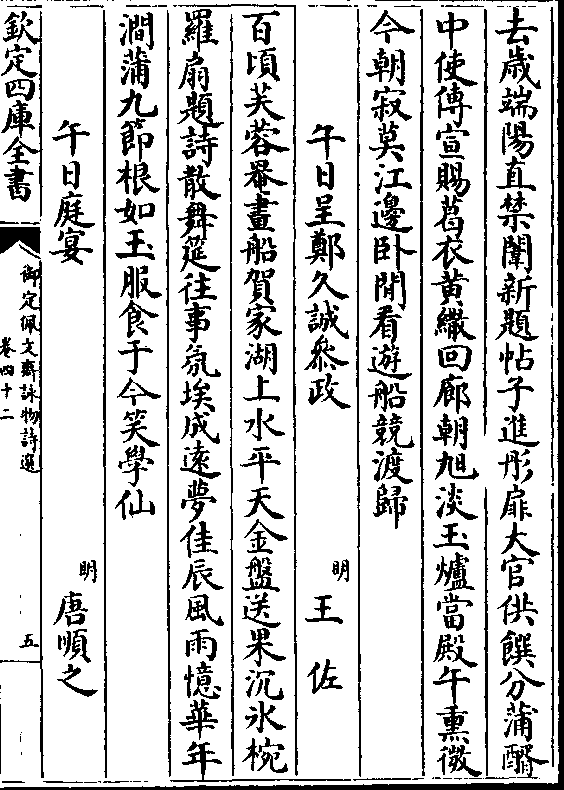 去歲端陽直禁闈新題帖子進彤扉大官供饌分蒲醑
中使傳宣賜葛衣黃繖回廊朝旭淡玉爐當殿午熏微
今朝寂莫江邊卧閒看遊船競渡歸
午日呈鄭久誠叅政 明 王佐
百頃芙蓉罨畫船賀家湖上水平天金盤送果沉氷椀
羅扇題詩散舞筵往事氛埃成遠夢佳辰風雨憶華年
澗蒲九節根如玉服食于今笑學仙
午日庭宴 明 唐順之
欽定四庫全書
御定佩文齋詠物詩選
卷四十二
五